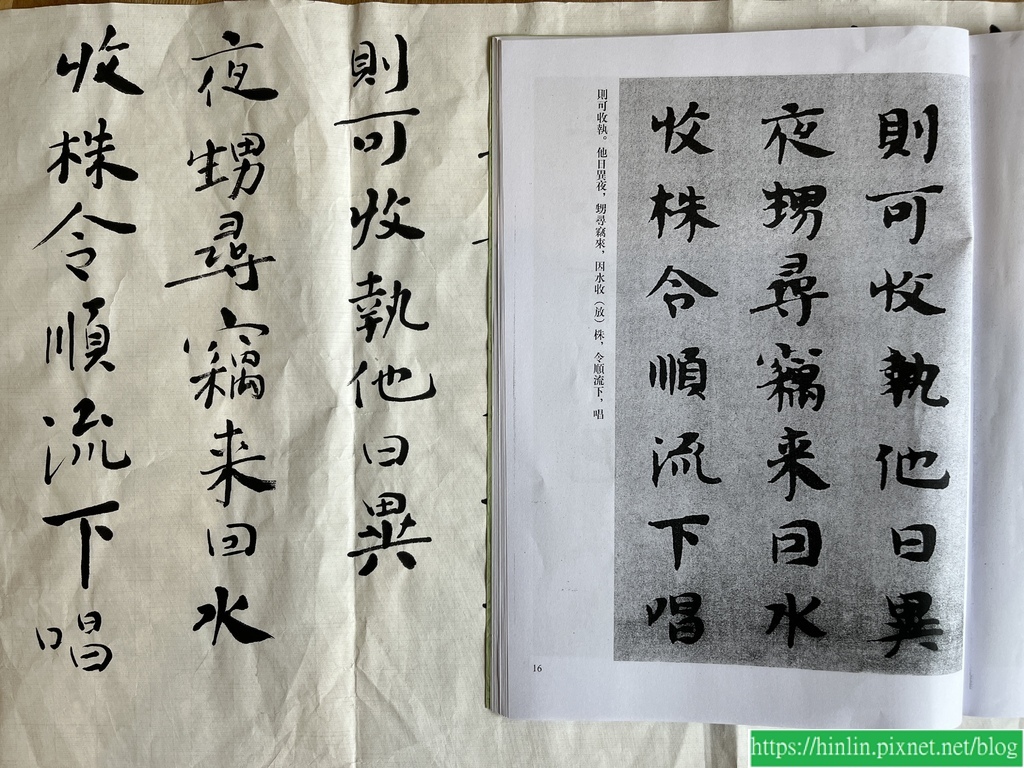 則可收執他日異
夜甥尋竊来囙水
收株令順流下唱
則可收執。他日異夜，甥尋竊來，因水收（放）株，令順流下，唱
16
則可收執他日異
夜甥尋竊来囙水
收株令順流下唱
https://hinlin.pixnet.net/blog